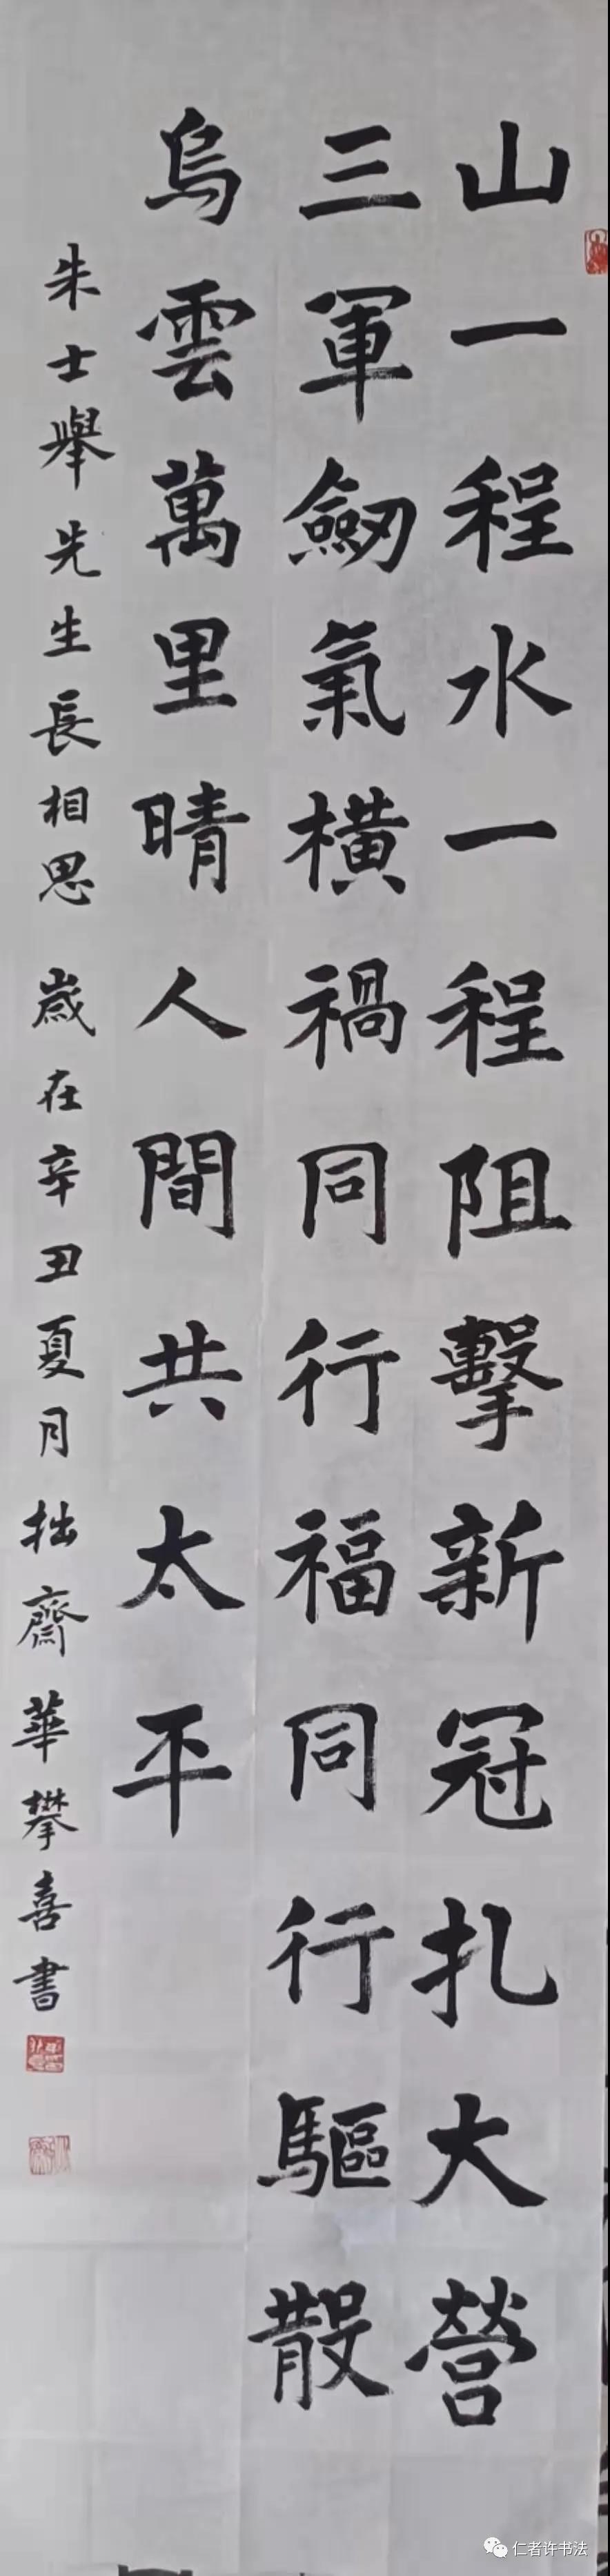 山一程水一程阻擊新冠扎大營
三軍劒氣橫禍同行福同行驅散
烏雲萬里晴人間共太平
朱士舉先生長相思 歲在辛丑夏月拙齋華攀喜書
仁者许书法